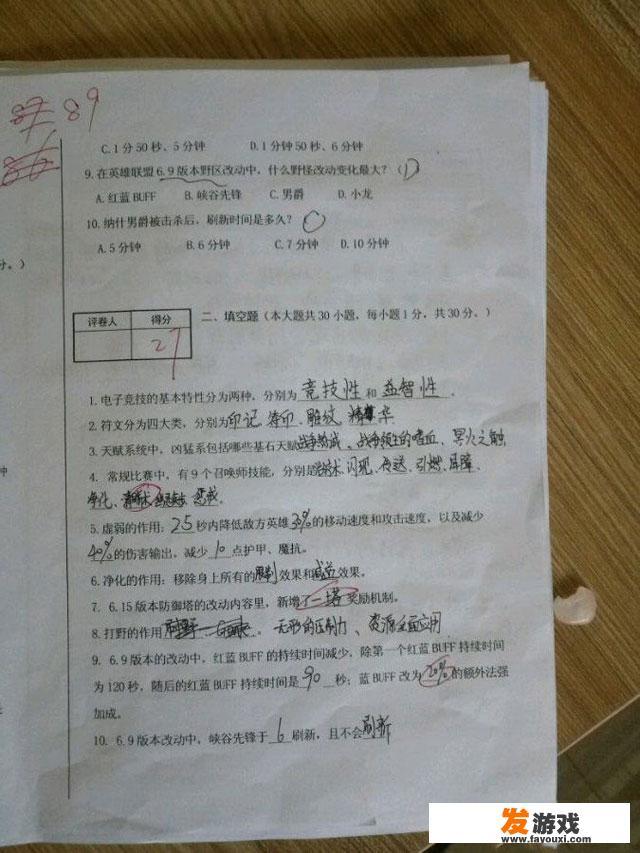 89
C.1分50秒、5分钟 D.1分钟50秒、6分钟
9.在英雄联盟6.9版本野区改动中，什么野怪改动变化最大？（D）
A.红蓝BUFF B.峡谷先锋 C.男爵 D.小龙
10.纳什男爵被击杀后，刷新时间是多久？（C）
A.5分钟 B.6分钟 C.7分钟 D.10分钟
分。）
评卷人 得分
27
二、填空题（本大题共30小题，每小题1分，共30分。）
1.电子竞技的基本特性分为两种，分别为竞技性和益智性。
2.符文分为四大类，分别为印记、符印、雕纹、精华
3.天赋系统中，凶猛系包括哪些基石天赋战争热诚、战争领主的嗜血、冥火之触
4.常规比赛中，有9个召唤师技能，分别是治疗术、闪现、传送、引燃、屏障、
净化、惩戒
5.虚弱的作用：2.5秒内降低敌方英雄30%的移动速度和攻击速度，以及减少
40%的伤害输出，减少10点护甲、魔抗。
6.净化的作用：移除身上所有的限制效果和减益效果。
7. 6.15版本防御塔的改动内容里，新增了一塔奖励机制。
8.打野的作用 无形的压制力、资源全面应用
9. 6.9版本的改动中，红蓝BUFF的持续时间减少，除第一个红蓝BUFF持续时间
为120秒，随后的红蓝BUFF持续时间是90秒；蓝BUFF改为20%的额外法强
加成。
10. 6.9版本改动中，峡谷先锋于6刷新，且不会刷新
钟
发游戏
www.fayouxi.com